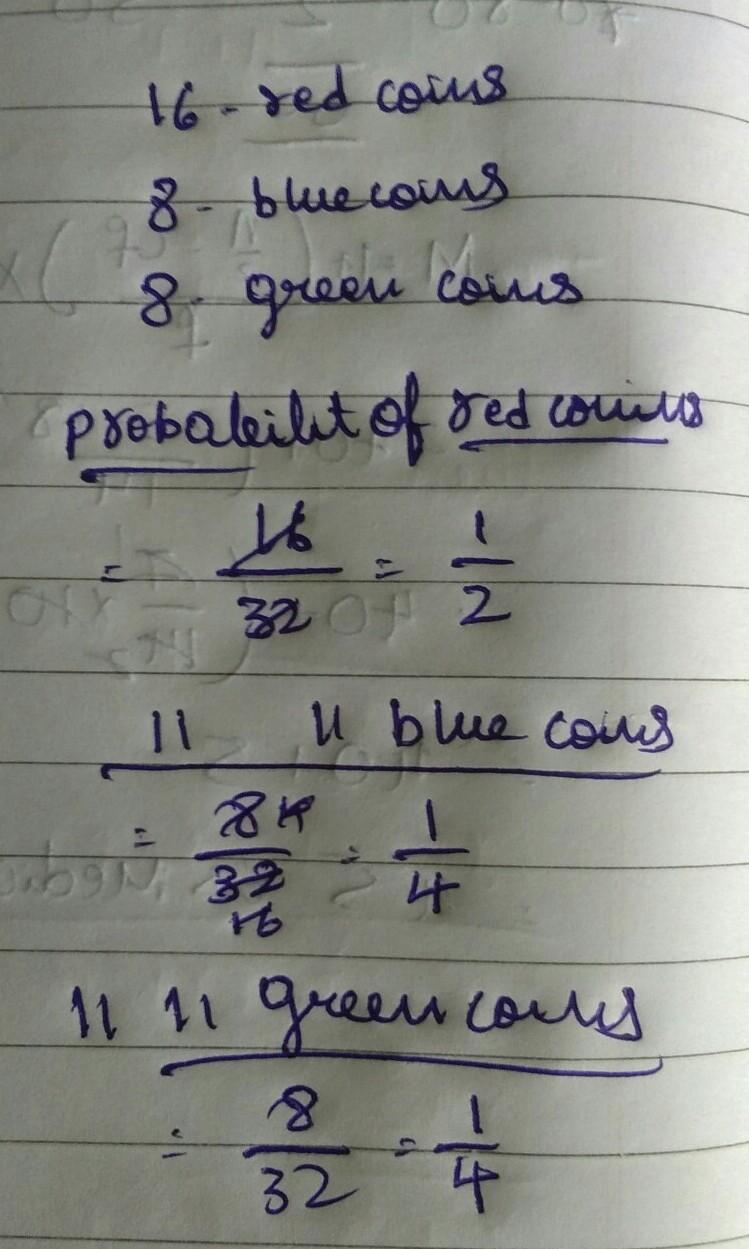 16 - red coins
8 - blue coins
8 - green coins
probabeilit of red coins
= 16/32 = 1/2
11 11 blue coins
= 8 4/32 16 = 1/4
11 11 green coins
= 8/32 = 1/4